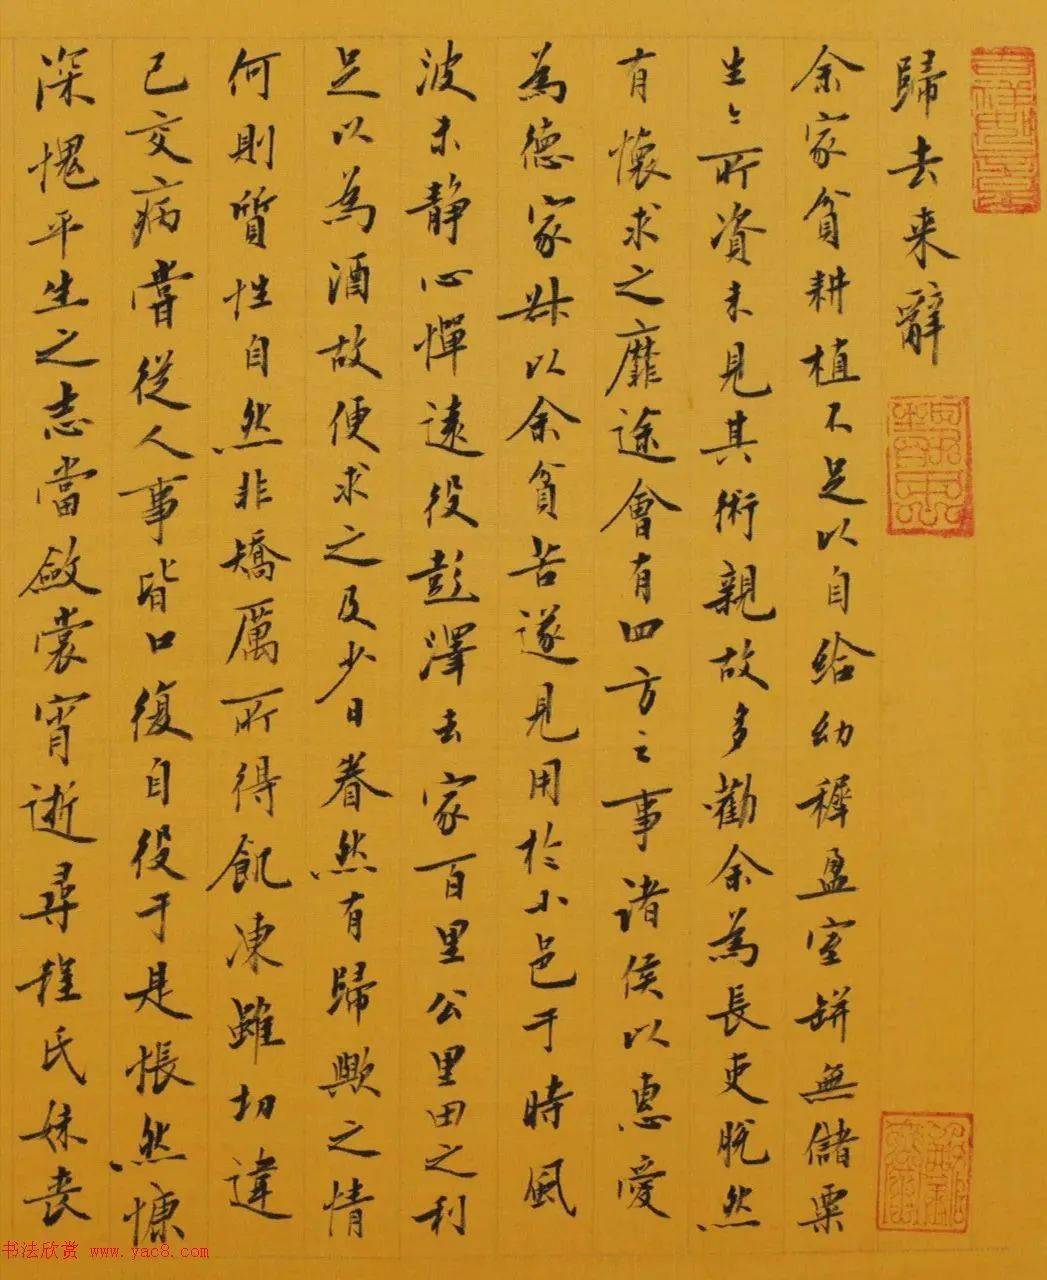 歸去来辭
余家貧耕植不足以自給幼穉盈室缾無儲粟
生〻所資未見其術親故多勸余為長吏脫然
有懷求之靡途會有四方之事諸侯以惠愛
為德家叔以余貧苦遂見用於小邑于時風
波未靜心憚遠役彭澤去家百里公里田之利
足以為酒故便求之及少日眷然有歸歟之情
何則質性自然非矯厲所得飢凍雖切違
己交病嘗從人事皆口復自役于是悵然慷
深愧平生之志當斂裳宵逝尋程氏妹喪
书法欣赏 www.yac8.com